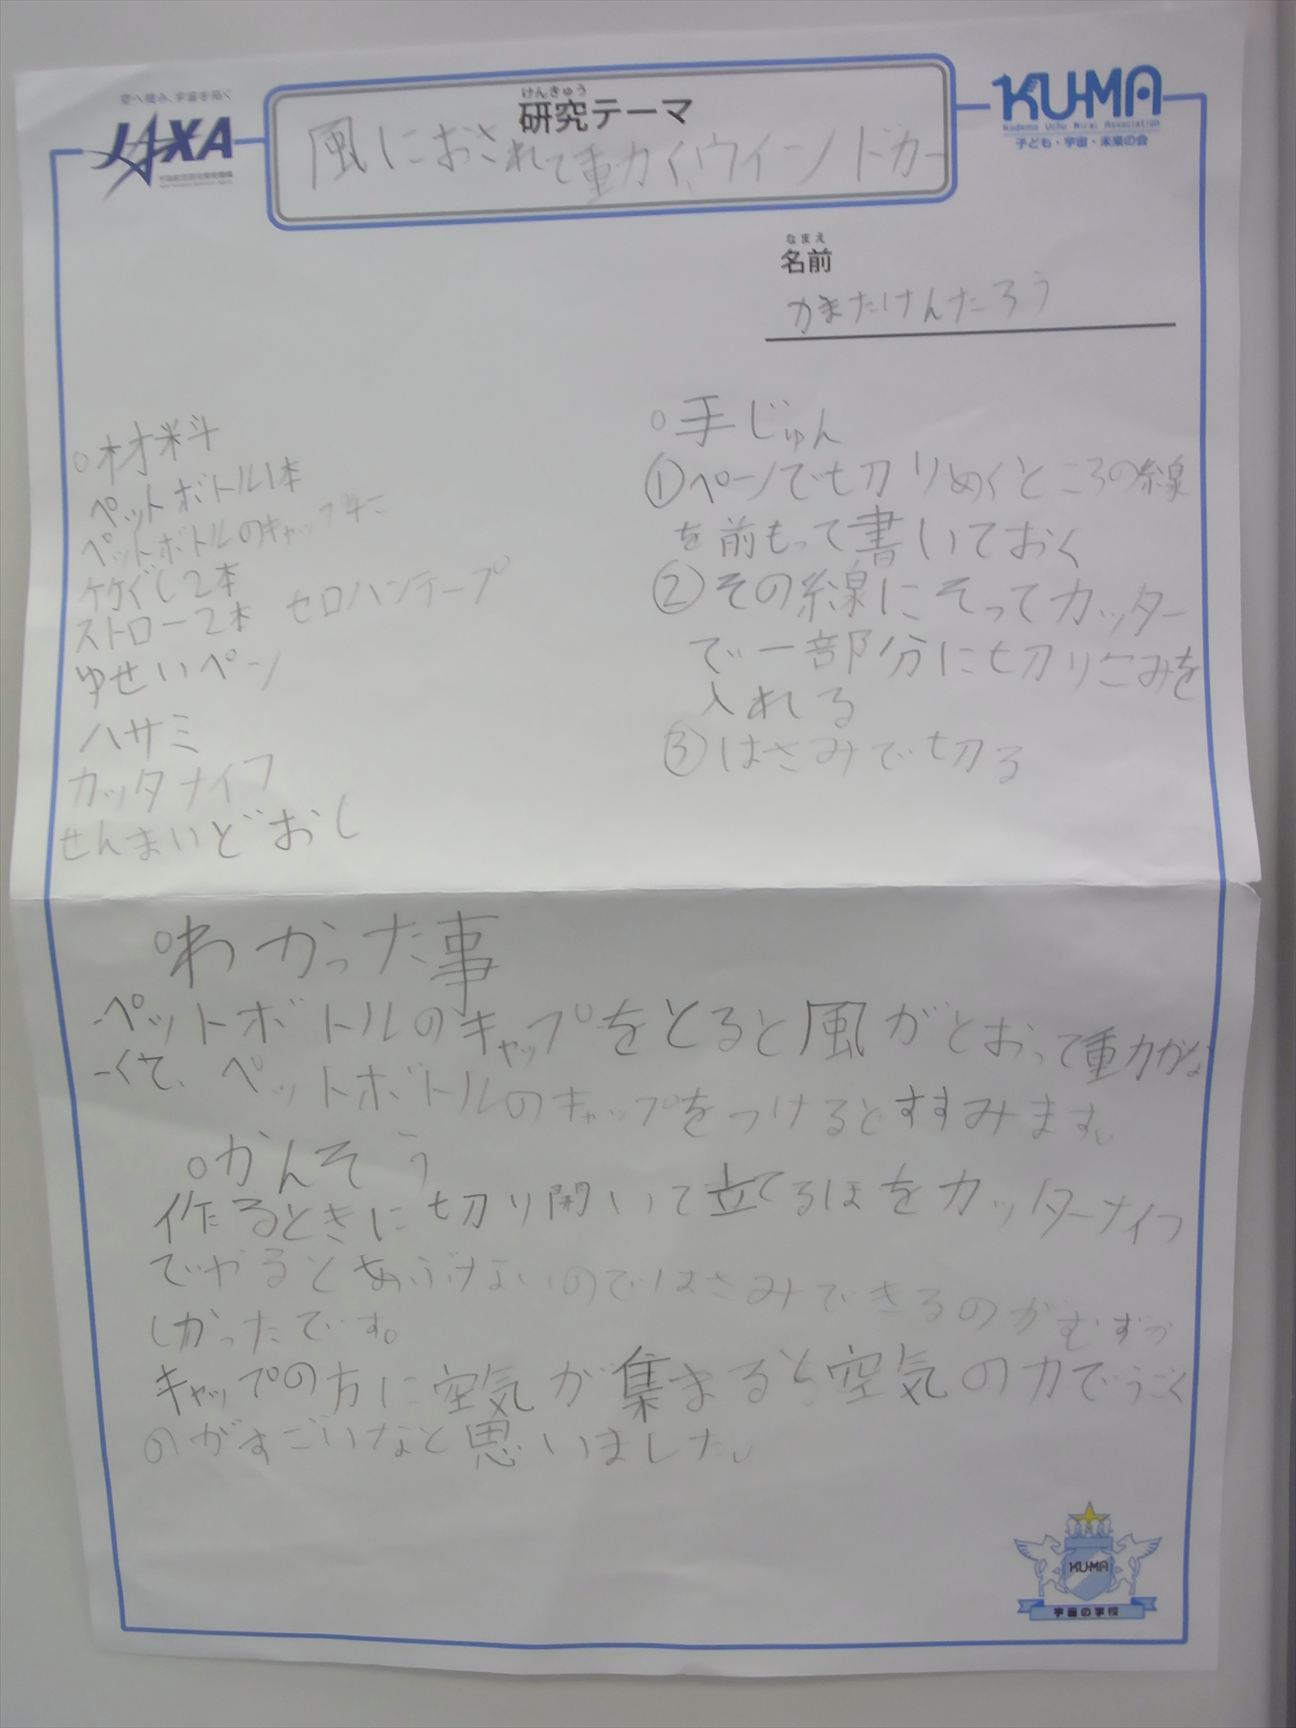 空へ挑み、宇宙を拓く
JAXA
KU-MA
Kodomo Uchu Mirai Association
子ども・宇宙・未来の会
けんきゅう
研究テーマ
風におされて動く、ウインドカー
なまえ
名前
かまたけんたろう
○材料
ペットボトル1本
ペットボトルのキャップ4こ
竹ぐし2本
ストロー2本 セロハンテープ
ゆせいペン
ハサミ
カッタナイフ
せんまいどおし
○手じゅん
①ペンでも切りぬくところの線
を前もって書いておく
②その線にそってカッター
で一部分に切りこみを
入れる
③はさみで切る
○わかった事
ペットボトルのキャップをとると風がとおって動かな
くて、ペットボトルのキャップをつけるとすすみます。
○かんそう
作るときに切り開いて立てるほをカッターナイフ
でやるとあぶないのではさみできるのがむずか
しかったです。
キャップの方に空気が集まると空気の力でうごく
のがすごいなと思いました。
KU-MA
宇宙の学校